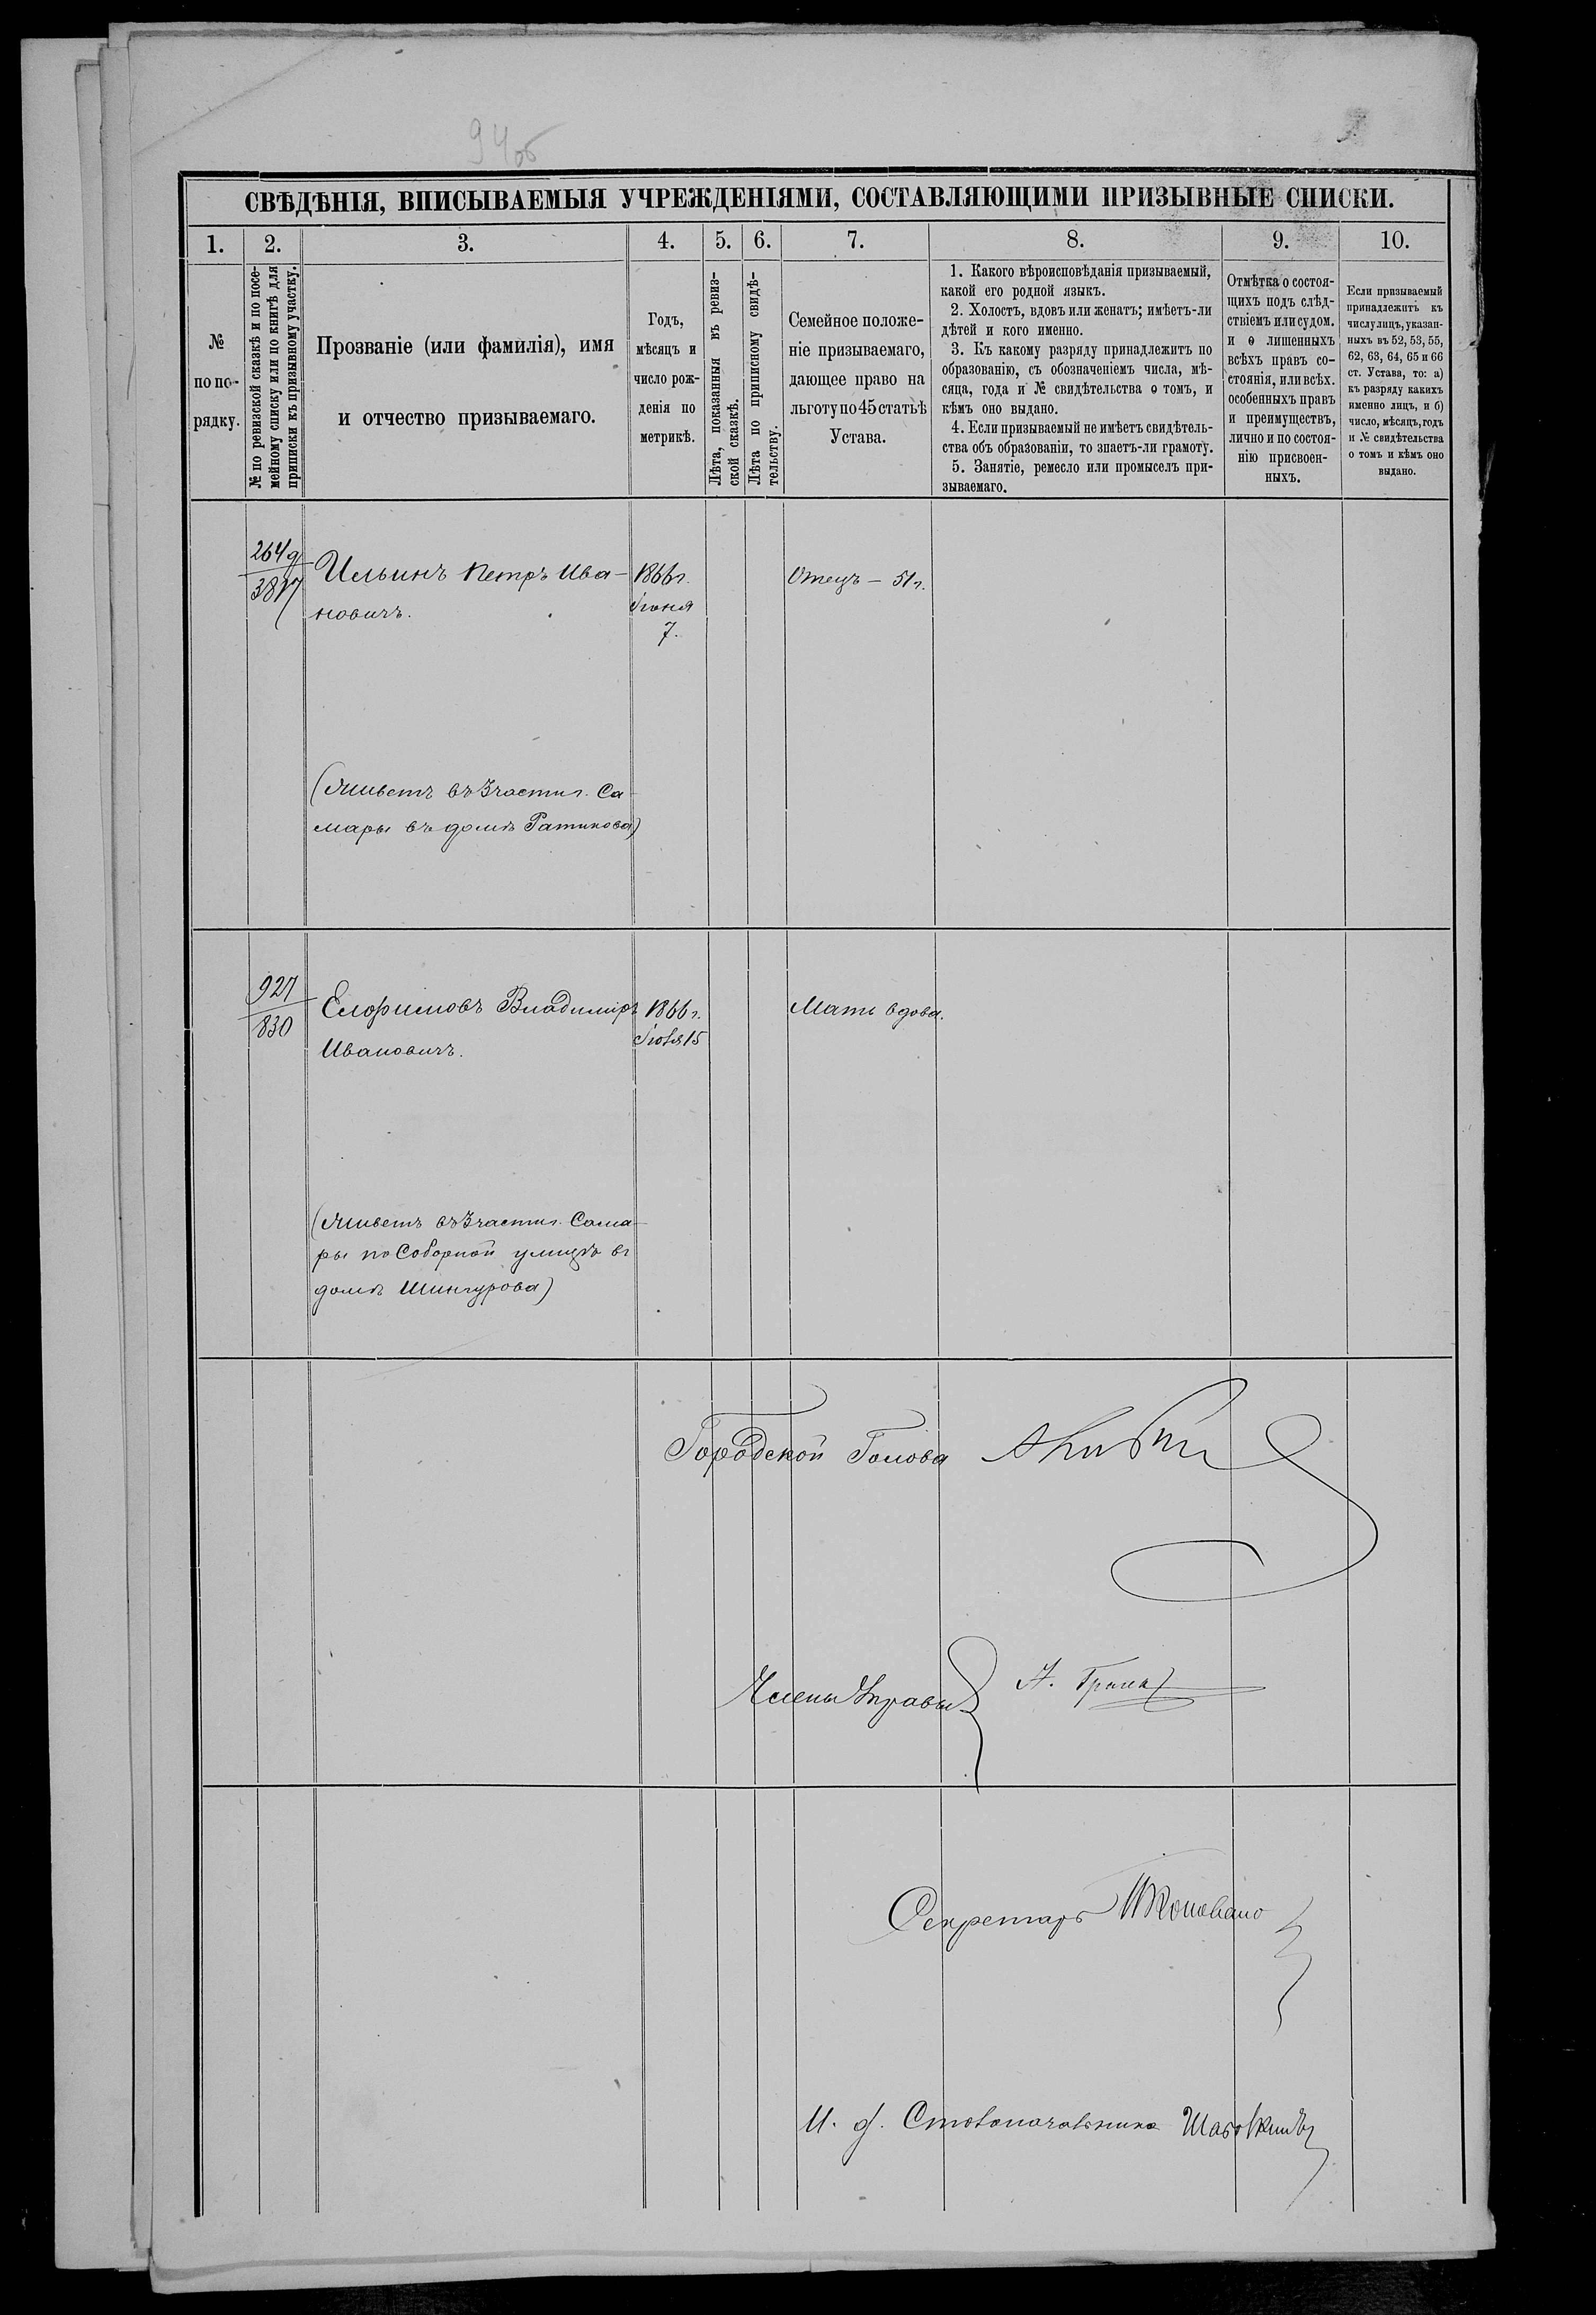 94об
СВѢДѢНІЯ, ВПИСЫВАЕМЫЯ УЧРЕЖДЕНІЯМИ, СОСТАВЛЯЮЩИМИ ПРИЗЫВНЫЕ СПИСКИ.
1. 2. 3. 4. 5. 6. 7. 8. 9. 10.
№
по по-
рядку.
№ по ревизской сказкѣ и по посе-
мейному списку или по книгѣ для
приписки къ призывному участку.
Прозваніе (или фамилія), имя
и отчество призываемаго.
Годъ,
мѣсяцъ и
число рож-
денія по
метрикѣ.
Лѣта, показанныя въ ревиз-
ской сказкѣ.
Лѣта по приписному свидѣ-
тельству.
Семейное положе-
ніе призываемаго,
дающее право на
льготу по 45 статьѣ
Устава.
1. Какого вѣроисповѣданія призываемый,
какой его родной языкъ.
2. Холостъ, вдовъ или женатъ; имѣетъ-ли
дѣтей и кого именно.
3. Къ какому разряду принадлежитъ по
образованію, съ обозначеніемъ числа, мѣ-
сяца, года и № свидѣтельства о томъ, и
кѣмъ оно выдано.
4. Если призываемый не имѣетъ свидѣтель-
ства объ образованіи, то знаетъ-ли грамоту.
5. Занятіе, ремесло или промыселъ при-
зываемаго.
Отмѣтка о состоя-
щихъ подъ слѣд-
ствіемъ или судом.
и о лишенныхъ
всѣхъ правъ со-
стоянія, или всѣх.
особенныхъ правъ
и преимуществъ,
лично и по состоя-
нію присвоен-
ныхъ.
Если призываемый
принадлежитъ къ
числу лицъ, указан-
ныхъ въ 52, 53, 55,
62, 63, 64, 65 и 66
ст. Устава, то: а)
къ разряду какихъ
именно лицъ, и б)
число, мѣсяцъ, годъ
и № свидѣтельства
о томъ и кѣмъ оно
выдано.
Ильинъ Петръ Ива-
новичъ.
1866 г.
Іюня
7.
Отецъ – 51 г.
(живетъ въ 3 части г. Са-
мары въ домѣ Ратикова)
927
830
Елофимовъ Владиміръ
Ивановичъ.
1866 г.
Іюля 15
Мать вдова.
(живетъ въ 3 части г. Сама-
ры по Соборной улицѣ въ
домѣ Шингурова)
Городской Голова
Члены Управы
Секретарь
И. д. Столоначальника